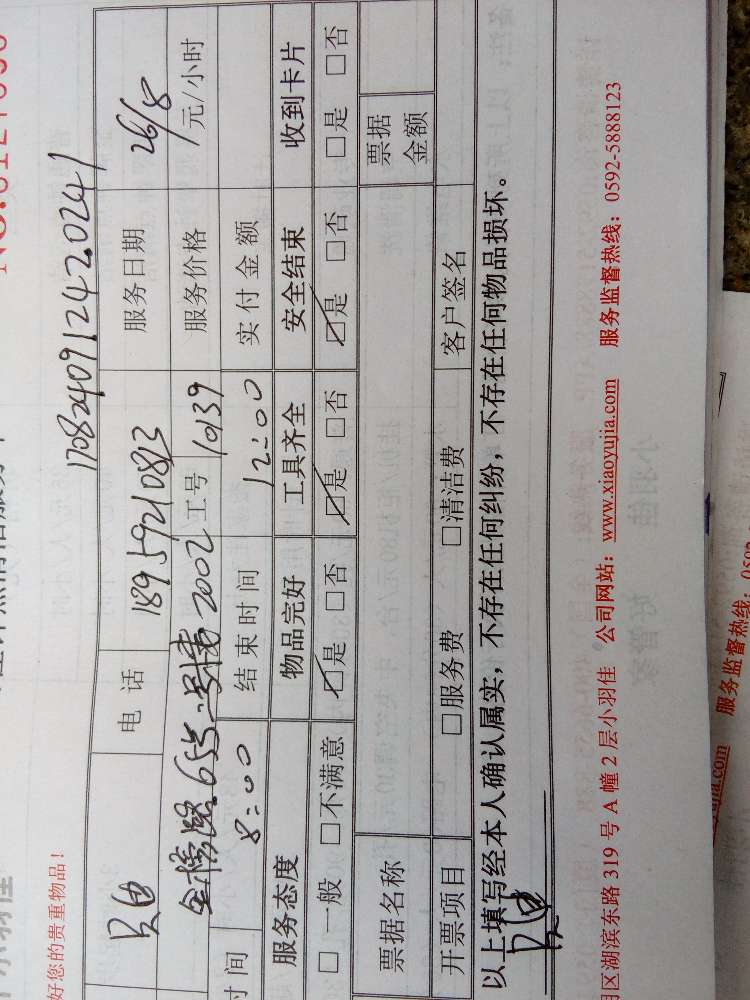 170824091242.0241
好您的贵重物品！
电 话 18959210813 服务日期 26/8
金榜路655号 2002 工号 10139 服务价格 元/小时
时间 8:00 结束时间 12:00 实付金额
服务态度 物品完好 工具齐全 安全结束 收到卡片
□一般 □不满意 ☑是 □否 ☑是 □否 ☑是 □否 □是 □否
票据名称 票据金额
开票项目 □服务费 □清洁费 客户签名
以上填写经本人确认属实，不存在任何纠纷，不存在任何物品损坏。
区湖滨东路 319 号 A 幢 2 层小羽佳 公司网站：www.xiaoyujia.com 服务监督热线：0592-5888123
服务监督热线：0592